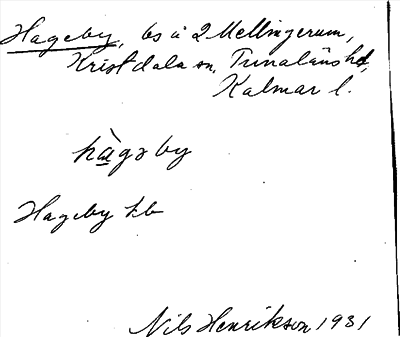 Hageby, bs å 2 Mellingerum,
Kristdala sn, Tunaläns hd,
Kalmar l.
hàgəby
Hageby kb
Nils Henrikson 1931